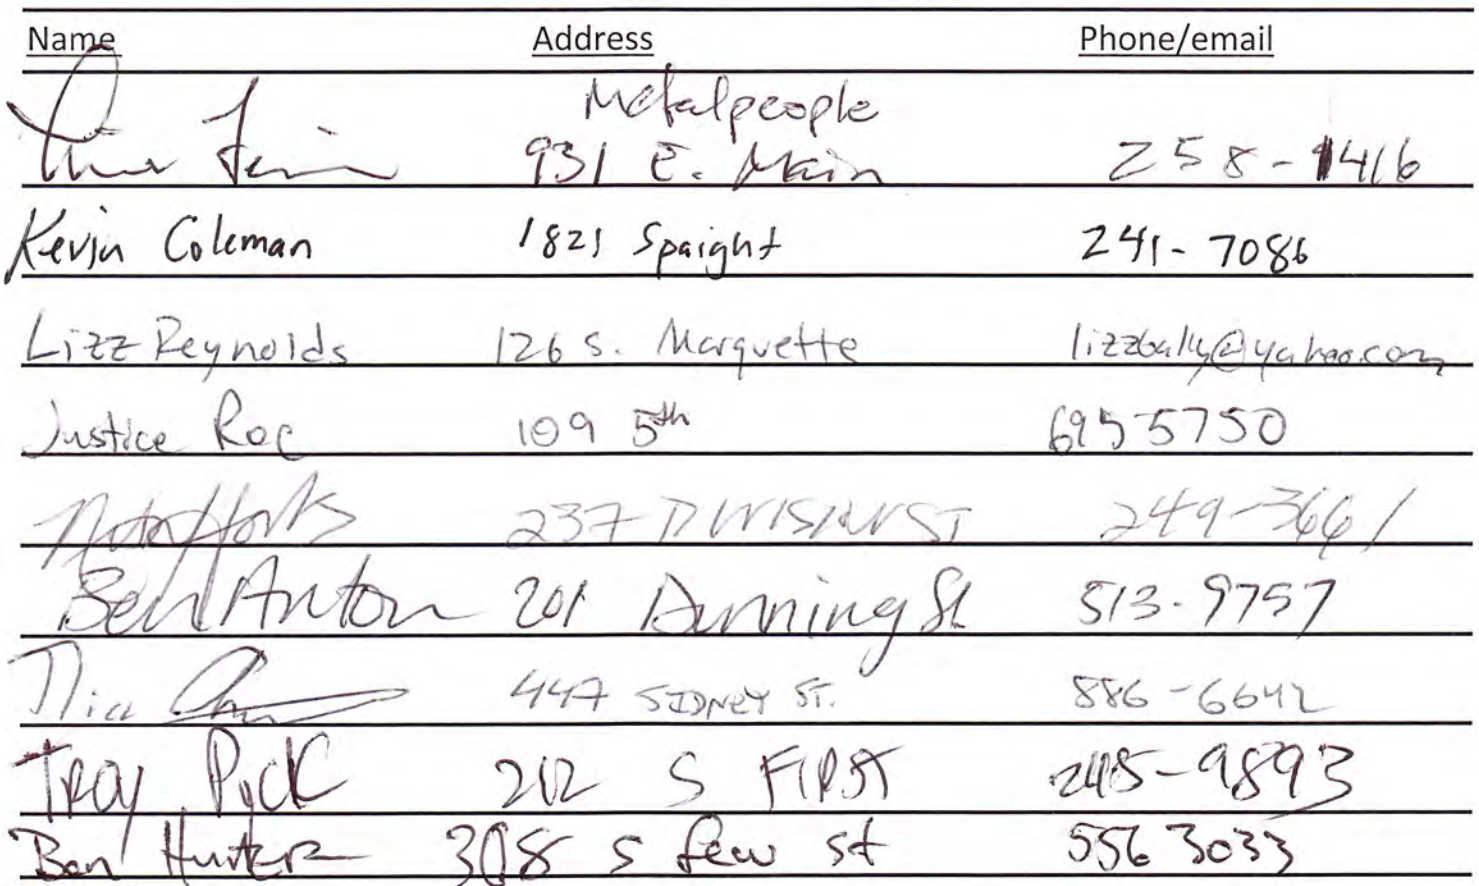 Name Address Phone/email
Metalpeople
931 E. Main 258-1416
Kevin Coleman 1821 Spaight 241-7086
Lizz Reynolds 126 S. Marquette lizzbally@yahoo.com
Justice Roc 109 5th 695 5750
237 DIVISION ST 249-3661
Ben Anton 201 Dunning St 513-9757
447 SIDNEY ST. 886-6642
TROY PyCK 212 S FIRST 245-9893
Ben Hunter 308 S few st 556 3033